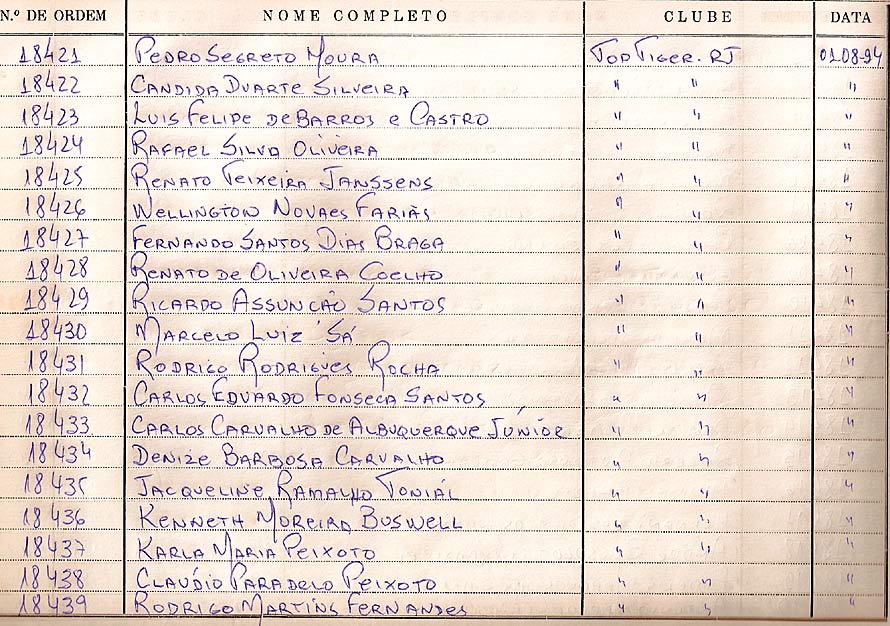 N.º DE ORDEM NOME COMPLETO CLUBE DATA
18421 PEDRO SEGRETO MOURA TOP TIGER. RJ 01.08.94
18422 CANDIDA DUARTE SILVEIRA " " "
18423 LUIS FELIPE DE BARROS E CASTRO " " "
18424 RAFAEL SILVA OLIVEIRA " " "
18425 RENATO TEIXEIRA JANSSENS " " "
18426 WELLINGTON NOVAES FARIAS " " "
18427 FERNANDO SANTOS DIAS BRAGA " " "
18428 RENATO DE OLIVEIRA COELHO " " "
18429 RICARDO ASSUNCÃO SANTOS " " "
18430 MARCELO LUIZ SÁ " " "
18431 RODRIGO RODRIGUES ROCHA " " "
18432 CARLOS EDUARDO FONSECA SANTOS " " "
18433 CARLOS CARVALHO DE ALBUQUERQUE JÚNIOR " " "
18434 DENIZE BARBOSA CARVALHO " " "
18435 JACQUELINE RAMALHO TONIAL " " "
18436 KENNETH MOREIRA BUSWELL " " "
18437 KARLA MARIA PEIXOTO " " "
18438 CLAUDIO PARADELO PEIXOTO " " "
18439 RODRIGO MARTINS FERNANDES " " "